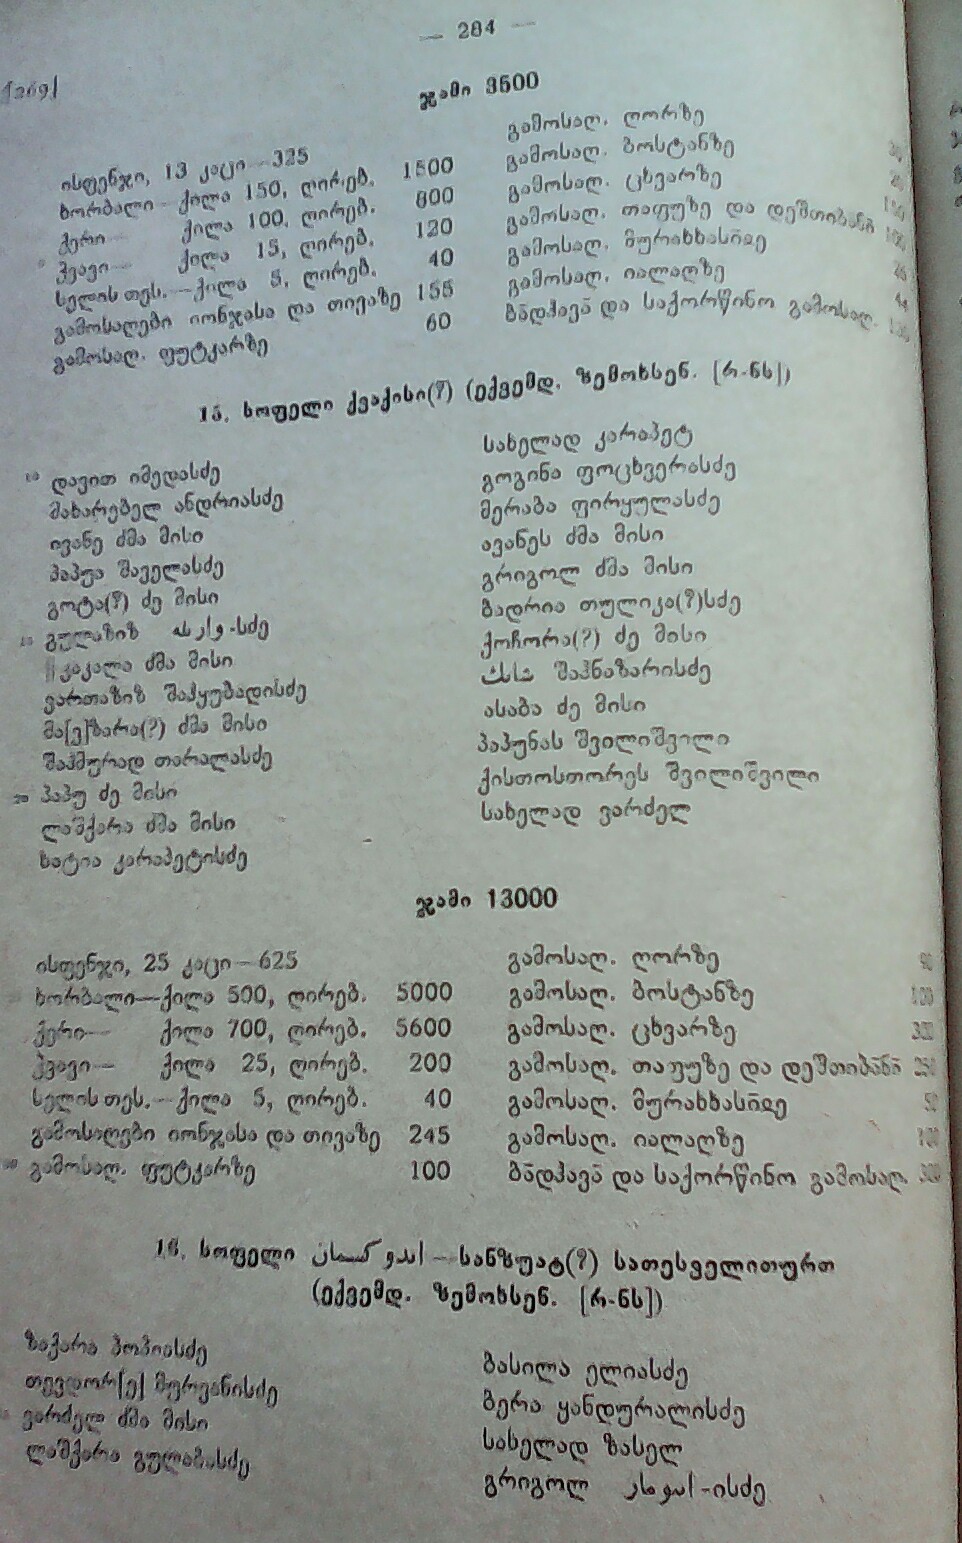 — 284 —
[269]
ჯამი 3500
ისფენჯი, 13 კაცი—325
ხორბალი—ქილა 150, ღირებ. 1500
ქერი— ქილა 100, ღირებ. 800
ჭვავი— ქილა 15, ღირებ. 120
სელის თეს.—ქილა 5, ღირებ. 40
გამოსაღები იონჯასა და თივაზე 155
გამოსაღ. ფუტკარზე 60
გამოსაღ. ღორზე
გამოსაღ. ბოსტანზე
გამოსაღ. ცხვარზე
გამოსაღ. თაფუზე და დეშთიბანზე
გამოსაღ. მურახხასიჲე
გამოსაღ. იალაღზე
ბადჰავა და საქორწინო გამოსაღ.
15. სოფელი ქვაქისი(?) (ექვემდ. ზემოხსენ. [რ-ნს])
დავით იმედასძე
მახარებელ ანდრიასძე
ივანე ძმა მისი
პაპუა შაველასძე
გოტა(?) ძე მისი
გულაზიზ -სძე
კაკალა ძმა მისი
ვართაზიზ შაჰყუბადისძე
მა[ე]ზარა(?) ძმა მისი
შაჰმურად თარალასძე
20 პაპუ ძე მისი
ლაშქარა ძმა მისი
ხატია კარაპეტისძე
სახელად კარაპეტ
გოგინა ფოცხვერასძე
მერაბა ფირყულასძე
ავანეს ძმა მისი
გრიგოლ ძმა მისი
ბადრია თულიკა(?)სძე
ქოჩორა(?) ძე მისი
შაჰნაზარისძე
ასაბა ძე მისი
პაპუნას შვილიშვილი
ქისთოსთორეს შვილიშვილი
სახელად ვარძელ
ჯამი 13000
ისფენჯი, 25 კაცი—625
ხორბალი—ქილა 500, ღირებ. 5000
ქერი— ქილა 700, ღირებ. 5600
ჭვავი— ქილა 25, ღირებ. 200
სელის თეს.—ქილა 5, ღირებ. 40
გამოსაღები იონჯასა და თივაზე 245
გამოსაღ. ფუტკარზე 100
გამოსაღ. ღორზე
გამოსაღ. ბოსტანზე
გამოსაღ. ცხვარზე
გამოსაღ. თაფუზე და დეშთიბანა 250
გამოსაღ. მურახხასიჲე 50
გამოსაღ. იალაღზე 100
ბადჰავა და საქორწინო გამოსაღ. 300
16. სოფელი —სანზუატ(?) სათესველითურთ
(ექვემდ. ზემოხსენ. [რ-ნს])
ზაქარა პოპიასძე
თევდორ[ე] მურვანისძე
ვარძელ ძმა მისი
ლაშქარა გულაბასძე
ბასილა ელიასძე
ბერა ყანდურალისძე
სახელად ზასელ
გრიგოლ -ისძე